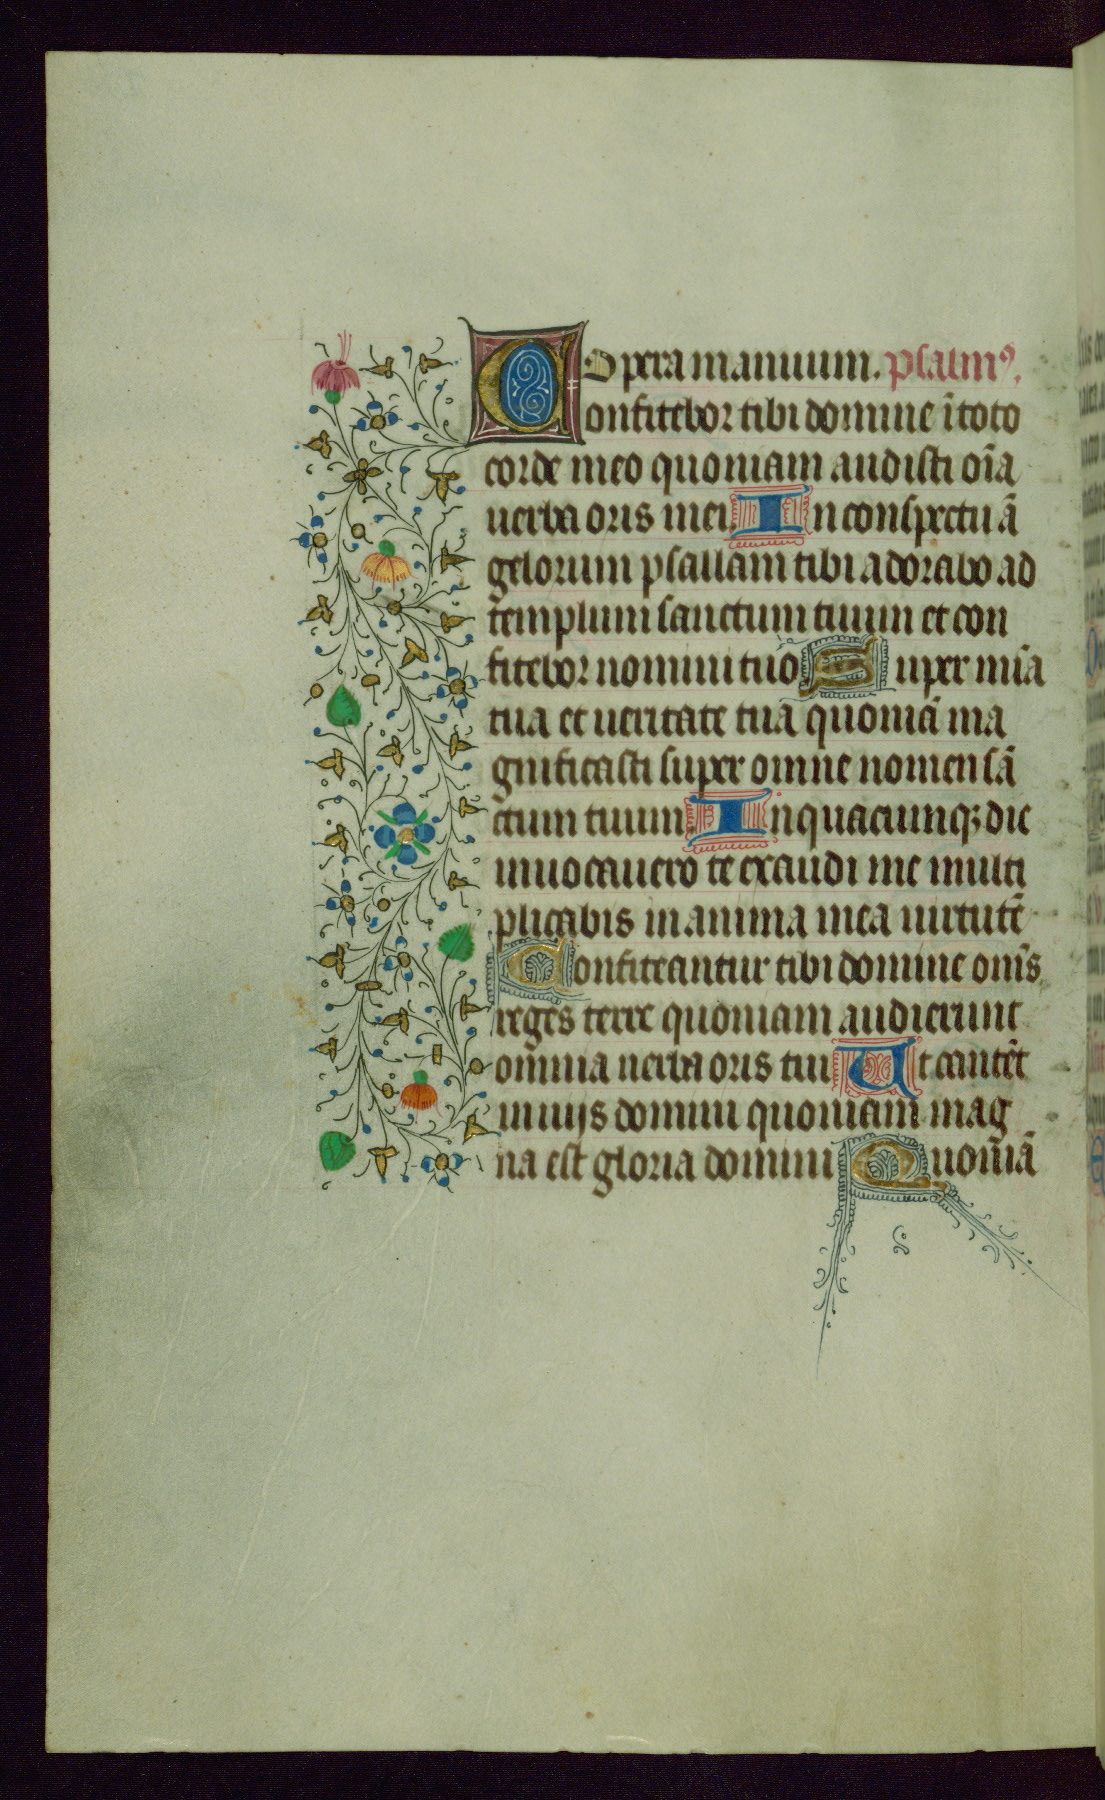 Opera manuum. psalm⁹.
Confitebor tibi domine ī toto
corde meo quoniam audisti oīa
uerba oris mei In conspectu ā
gelorum psallam tibi adorabo ad
templum sanctum tuum et con
fitebor nomini tuo Super mīa
tua et ueritate tuā quoniā ma
gnificasti super omne nomen sā
ctum tuum In quacumq; die
inuocauero te exaudi me multi
plicabis in anima mea uirtutē
Confiteantur tibi domine om̄s
reges terre quoniam audierunt
omnia uerba oris tui Et cantēt
in uijs domini quoniam mag
na est gloria domini Quoniā